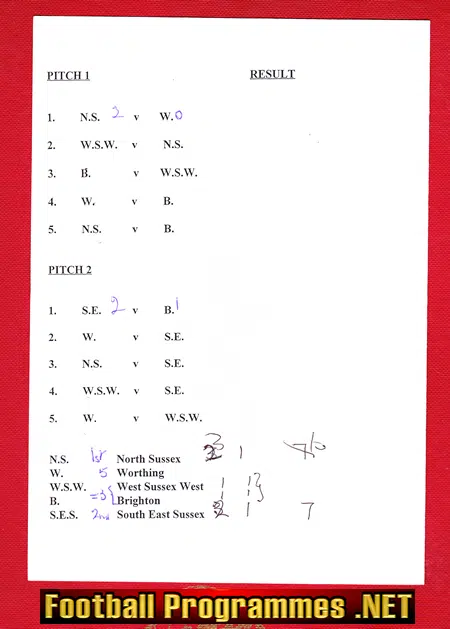 PITCH 1 RESULT
1. N.S. 2 v W. 0
2. W.S.W. v N.S.
3. B. v W.S.W.
4. W. v B.
5. N.S. v B.
PITCH 2
1. S.E. 2 v B. 1
2. W. v S.E.
3. N.S. v S.E.
4. W.S.W. v S.E.
5. W. v W.S.W.
N.S. 1st North Sussex 1
W. 5 Worthing
W.S.W. =3 West Sussex West 1 1
B. Brighton 1 1
S.E.S. 2nd South East Sussex 1 7
Football Programmes .NET